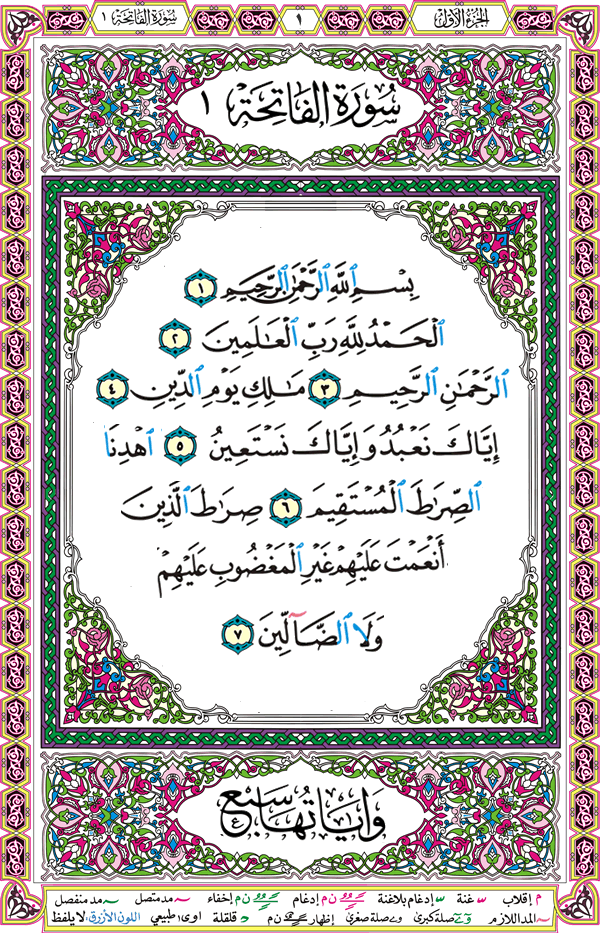 الجزء الأول
١
سورة الفاتحة ١
سُورَةُ الْفَاتِحَةِ ١
بِسْمِ ٱللَّهِ ٱلرَّحْمَٰنِ ٱلرَّحِيمِ ١
ٱلْحَمْدُ لِلَّهِ رَبِّ ٱلْعَٰلَمِينَ ٢
ٱلرَّحْمَٰنِ ٱلرَّحِيمِ ٣ مَٰلِكِ يَوْمِ ٱلدِّينِ ٤
إِيَّاكَ نَعْبُدُ وَإِيَّاكَ نَسْتَعِينُ ٥ ٱهْدِنَا
ٱلصِّرَٰطَ ٱلْمُسْتَقِيمَ ٦ صِرَٰطَ ٱلَّذِينَ
أَنْعَمْتَ عَلَيْهِمْ غَيْرِ ٱلْمَغْضُوبِ عَلَيْهِمْ
وَلَا ٱلضَّآلِّينَ ٧
وآياتها سبع
م إقلاب غنة إدغام بلاغنة م إدغام ن م إخفاء مد متصل مد منفصل
المد اللازم صلة كبرى صلة صغرى إظهار ن م قلقلة اوى: طبيعي اللون الأزرق: لا يلفظ